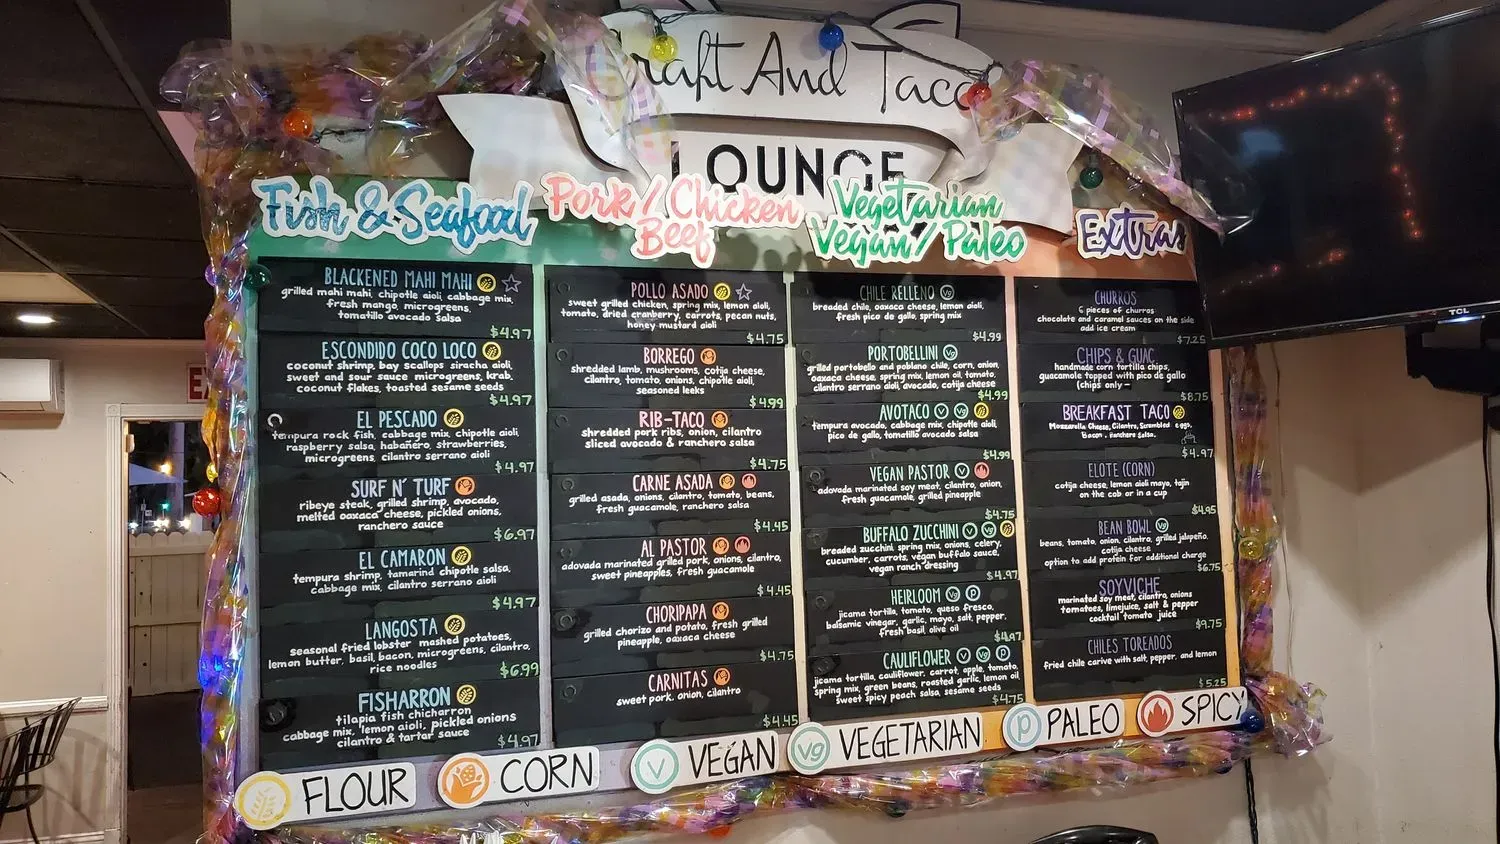 Craft And Taco
LOUNGE
Fish & Seafood
BLACKENED MAHI MAHI
grilled mahi mahi, chipotle aioli, cabbage mix,
fresh mango, microgreens,
tomatillo avocado salsa
$4.97
ESCONDIDO COCO LOCO
coconut shrimp, bay scallops siracha aioli,
sweet and sour sauce microgreens, krab,
coconut flakes, toasted sesame seeds
$4.97
EL PESCADO
tempura rock fish, cabbage mix, chipotle aioli,
raspberry salsa, habañero, strawberries,
microgreens, cilantro serrano aioli
$4.97
SURF N' TURF
ribeye steak, grilled shrimp, avocado,
melted oaxaca cheese, pickled onions,
ranchero sauce
$6.97
EL CAMARON
tempura shrimp, tamarind chipotle salsa,
cabbage mix, cilantro serrano aioli
$4.97
LANGOSTA
seasonal fried lobster mashed potatoes,
lemon butter, basil, bacon, microgreens, cilantro,
rice noodles
$6.99
FISHARRON
tilapia fish chicharron
cabbage mix, lemon aioli, pickled onions
cilantro & tartar sauce
$4.97
Pork / Chicken
Beef
POLLO ASADO
sweet grilled chicken, spring mix, lemon aioli,
tomato, dried cranberry, carrots, pecan nuts,
honey mustard aioli
$4.75
BORREGO
shredded lamb, mushrooms, cotija cheese,
cilantro, tomato, onions, chipotle aioli,
seasoned leeks
$4.99
RIB-TACO
shredded pork ribs, onion, cilantro
sliced avocado & ranchero salsa
$4.75
CARNE ASADA
grilled asada, onions, cilantro, tomato, beans,
fresh guacamole, ranchero salsa
$4.45
AL PASTOR
adovada marinated grilled pork, onions, cilantro,
sweet pineapples, fresh guacamole
$4.45
CHORIPAPA
grilled chorizo and potato, fresh grilled
pineapple, oaxaca cheese
$4.75
CARNITAS
sweet pork, onion, cilantro
$4.45
Vegetarian
Vegan / Paleo
CHILE RELLENO vg
breaded chile, oaxaca cheese, lemon aioli,
fresh pico de gallo, spring mix
$4.99
PORTOBELLINI vg
grilled portobello and poblano chile, corn, onion,
oaxaca cheese, spring mix, lemon oil, tomato,
cilantro serrano aioli, avocado, cotija cheese
$4.99
AVOTACO v vg
tempura avocado, cabbage mix, chipotle aioli,
pico de gallo, tomatillo avocado salsa
$4.99
VEGAN PASTOR v
adovada marinated soy meat, cilantro, onion,
fresh guacamole, grilled pineapple
$4.75
BUFFALO ZUCCHINI v vg
breaded zucchini spring mix, onions, celery,
cucumber, carrots, vegan buffalo sauce,
vegan ranch dressing
$4.97
HEIRLOOM vg p
jicama tortilla, tomato, queso fresco,
balsamic vinegar, garlic, mayo, salt, pepper,
fresh basil, olive oil
$4.97
CAULIFLOWER v vg p
jicama tortilla, cauliflower, carrot, apple, tomato,
spring mix, green beans, roasted garlic, lemon oil,
sweet spicy peach salsa, sesame seeds
$4.75
Extras
CHURROS
6 pieces of churros
chocolate and caramel sauces on the side
add ice cream
$7.25
CHIPS & GUAC
handmade corn tortilla chips,
guacamole topped with pico de gallo
(chips only —
$8.75
BREAKFAST TACO
Mozzarella Cheese, Cilantro, Scrambled eggs,
Bacon, Ranchero Salsa.
$4.97
ELOTE (CORN)
cotija cheese, lemon aioli mayo, tajin
on the cob or in a cup
$4.95
BEAN BOWL vg
beans, tomato, onion, cilantro, grilled jalapeño,
cotija cheese
option to add protein for additional charge
$6.75
SOYVICHE
marinated soy meat, cilantro, onions
tomatoes, limejuice, salt & pepper
cocktail tomato juice
$9.75
CHILES TOREADOS
fried chile carive with salt, pepper, and lemon
$5.25
FLOUR
CORN
v VEGAN
vg VEGETARIAN
p PALEO
SPICY
TCL
EX